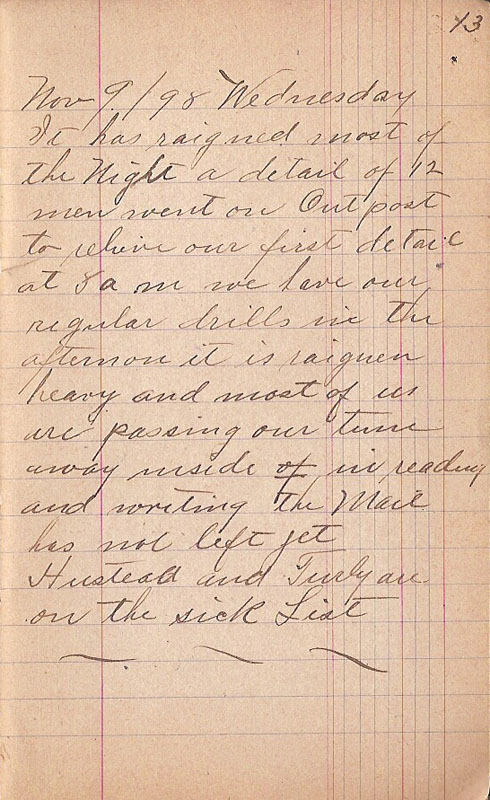 13
Nov 9/98 Wednesday
It has raigned most of
the Night a detail of 12
men went on Out post
to relieve our first detail
at 8 a m we have our
regular drills in the
afternon it is raignen
heavy and most of us
are passing our time
away inside of in reading
and writing the Mail
has not left yet
Hustead and Turly are
on the sick List